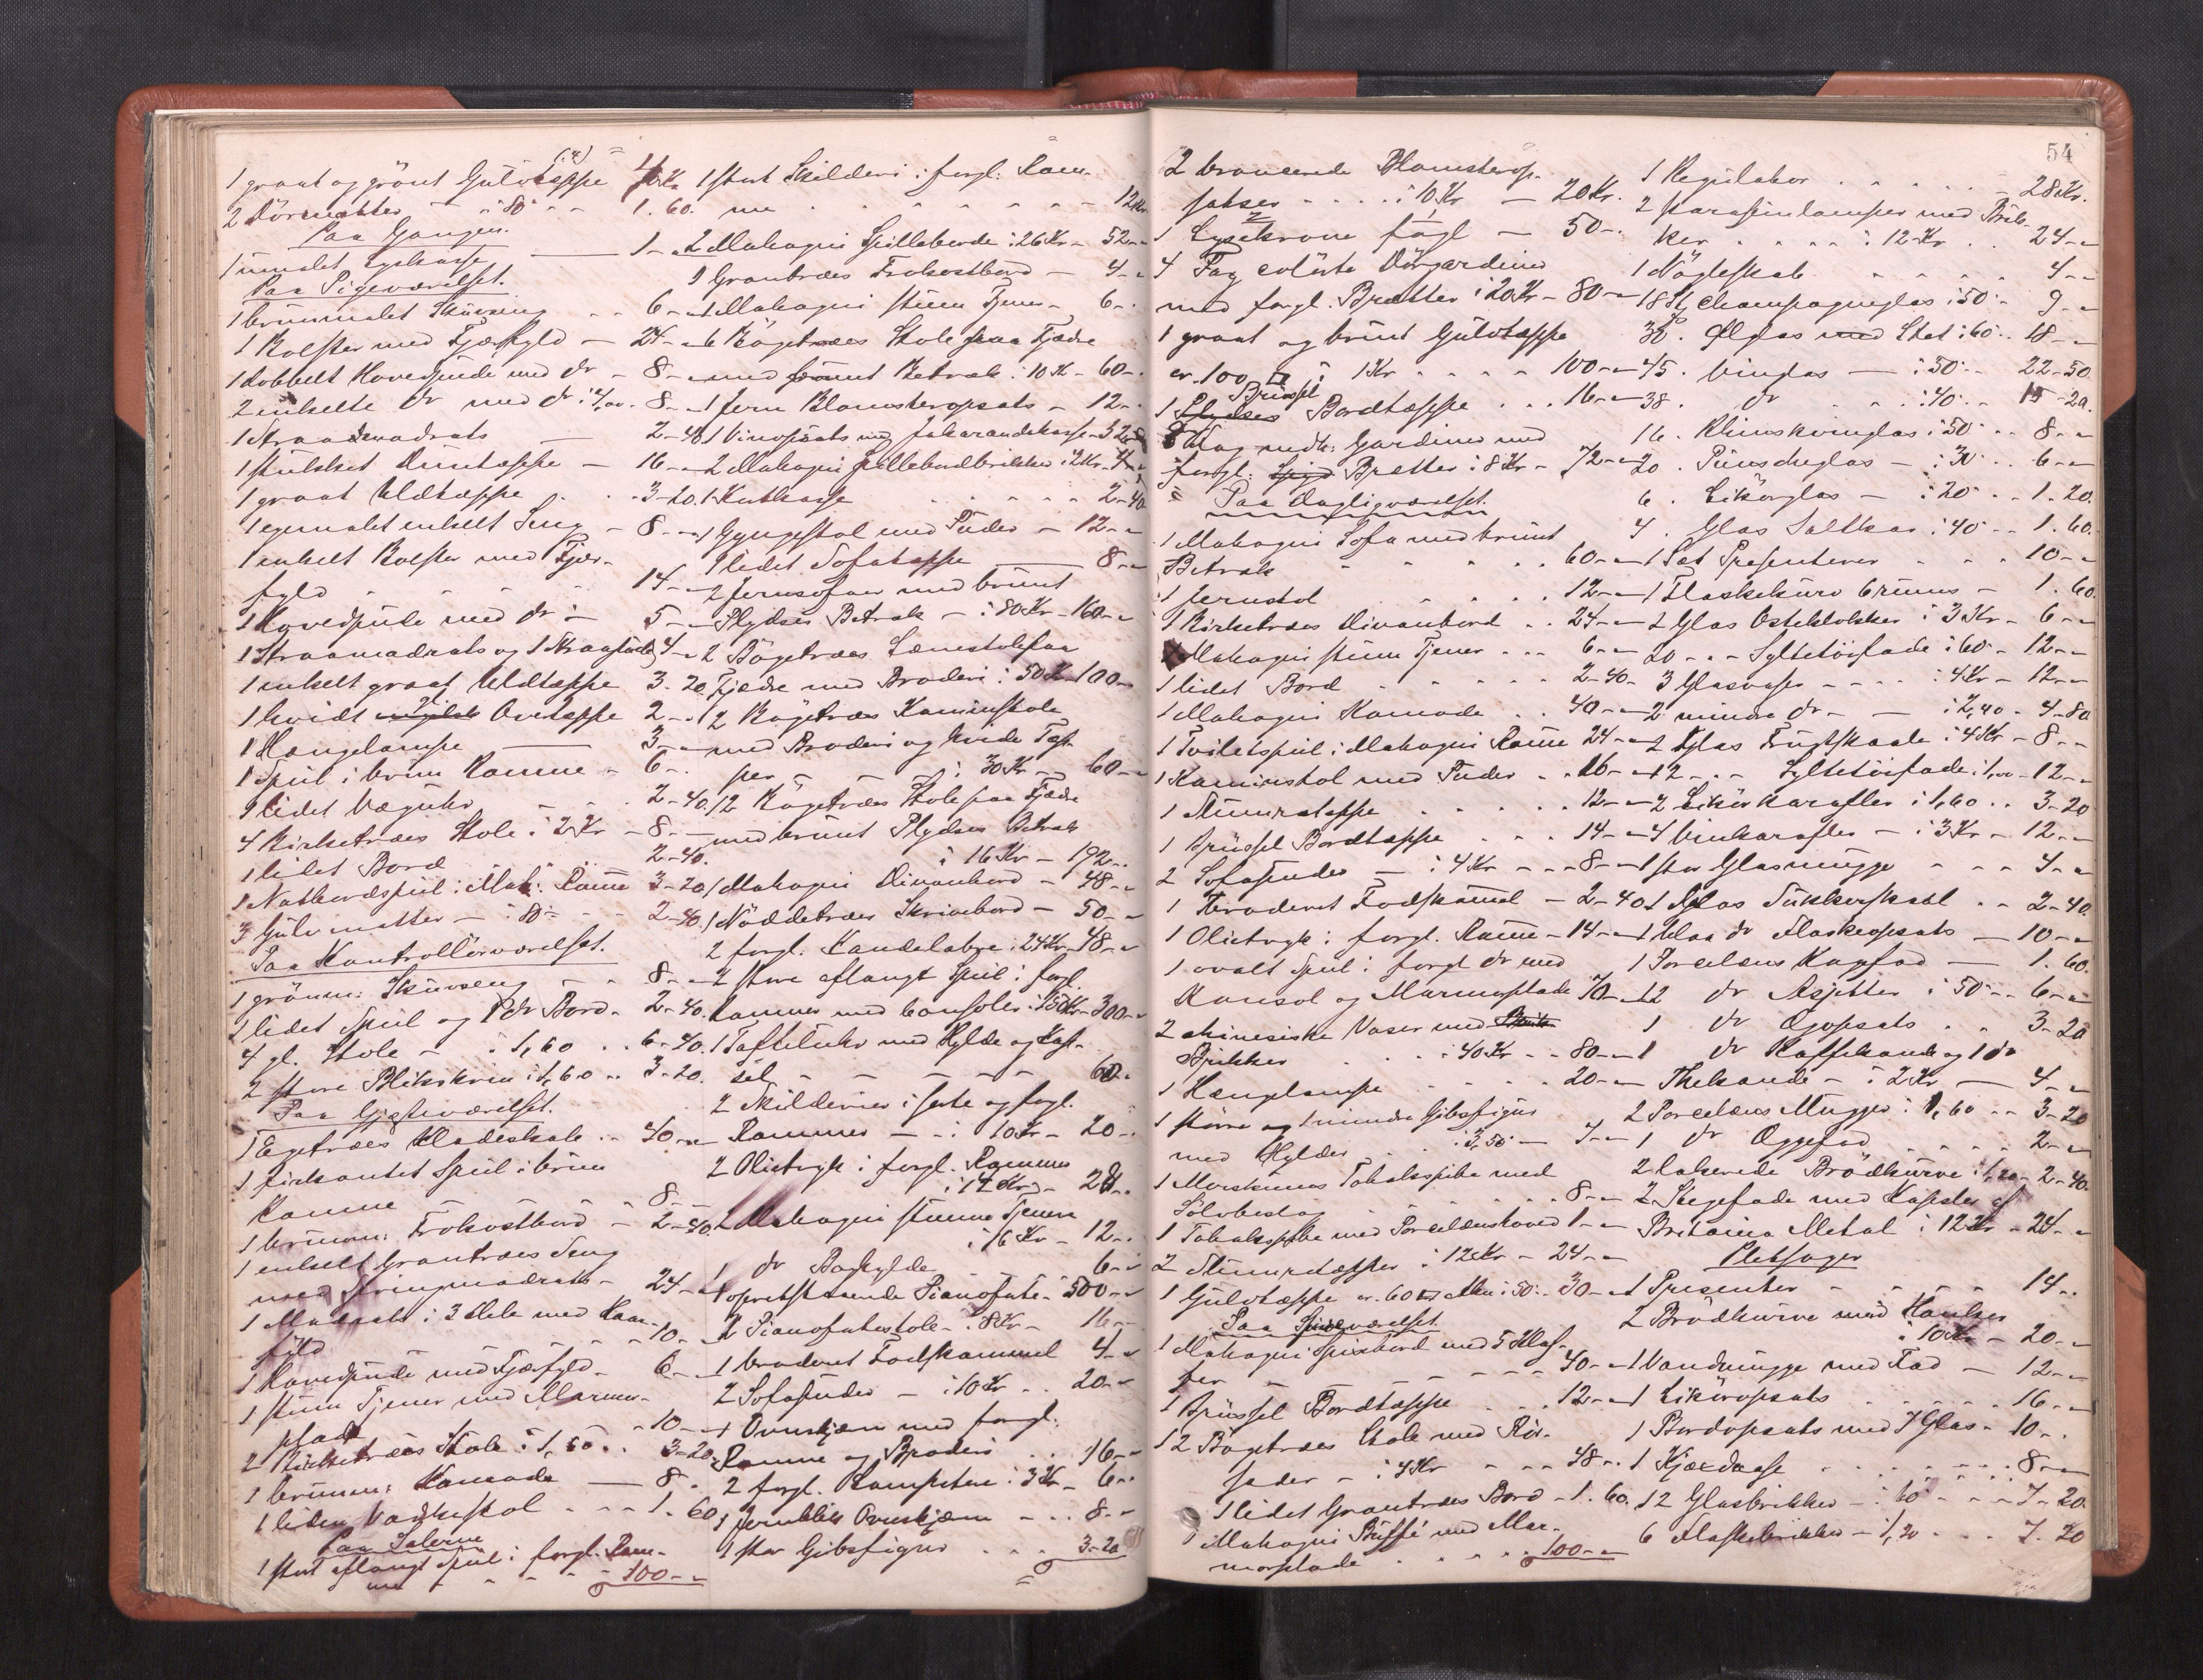 1 graat og grønt Gulvtæppe 4 Kr
2 Dörmatter - i 80 - - 1. 60.
Paa Gangen.
1 umalet 1 - -
Paa Pigeværelset.
1 brunmalet Skuvseng - - 6 - -
1 Bolster med Fjærfyld - 24 - -
1 dobbelt Hovedpude med do - 8 - -
2 enkelte do med do i 4,00 - 8 - -
1 Straamadrats - 2 - 40
1 stukket Duntæppe - 16 - -
1 graat Uldtæppe - 3 - 20.
1 egemalet enkelt Seng - 8 - -
1 enkelt Bolster med Fjær-
fyld - - - 14 - -
1 Hovedpude med do - 5 - -
1 Straamadrats og 1 Straapude 4 - -
1 enkelt graat Uldtæppe 3. 20
1 hvidt Overtæppe 2 - -
1 Hængelampe 3 - -
1 Speil i brun Ramme - 6 - -
1 lidet Væguhr - - 2 - 40.
4 Birketræes Stole i 2 Kr - 8 - -
1 lidet Bord 2 - 40.
1 Natbordspeil i Mah: Ramme 3 - 20
3 Gulvmatter - i 80 - - 2 - 40.
Paa Kontrollörværelset.
1 grönm: Skuvseng - - 8 - -
1 lidet Speil og 1 do Bord - 2 - 40.
4 gl. Stole - i 1,60 - - 6 - 40.
2 store Blikskrin i 1,60 - - 3 - 20.
Paa Gjesteværelset.
1 Egetræes Klædeskab - - 40 - -
1 firkantet Speil i brun
Ramme - - - 8 - -
1 brunm: Frokostbord - 2 - 40.
1 enkelt Grantræes Seng
med Springmadrats - 24 - -
1 Madrats i 3 Dele med
fyld - - - 10 - -
1 Hovedpude med Fjærfyld - 6 - -
1 stum Tjener med Marmor-
plade - - - 10 - -
2 Birketræes Stole i 1,60 - - 3 - 20.
1 brunm: Komode - 8 -
1 liden Vaskestol - - - 1. 60.
Paa Salerne
1 stort aflangt Speil i forgl. Ram-
me - - - - 100 - -
1 stort Skilderi i forgl: Ram-
me - - - - - - 12 Kr.
2 Mahogni Spilleborde i 26 Kr - 52 - -
1 Grantræes Frokostbord - 4 - -
1 Mahogni stum Tjener - 6 - -
6 Bøgetræes Stole paa Fjædre
med Betræk i 10 Kr - 60 - -
1 Jern Blomsteropsats - 12 - -
1 Vinopsats med Jakarandakasse 32 - -
2 Mahogni Spillebordbrikker i 2 Kr. 4 - -
1 Kortkasse - - - - 2 - 40
1 Gyngestol med Puder - 12 - -
1 lidet Sofatæppe 8 - -
2 Jernsofaer med brunt
Plydses Betræk - i 80 Kr - 160 - -
2 Bøgetræes Lænestole paa
Fjædre med Broderi i 50 Kr 100 - -
2 Bøgetræes Kaminstole
med Broderi og
per - - i 30 Kr - 60 - -
12 Bøgetræes Stole paa Fjædre
med brunt Plydses Betræk
i 16 Kr - 192 - -
1 Mahogni Divanbord - 48 - -
1 Nöddetræes Skrivebord - 50 - -
2 forgl. Kandelabre i 24 Kr - 48 - -
2 store aflangt Speil i forgl.
Rammer med Consoler i 150 Kr - 300 - -
1 Taffeluhr med Hylde og Kap-
sel - - - - - - 60 - -
2 Skilderier i sorte og forgl.
Rammer - - i 10 Kr - 20 - -
2 Olietryk i forgl. Rammer
i 14 Kr - 28 - -
2 Mahogni stumme Tjenere
i 6 Kr - 12 - -
1 do Boghylde 6 - -
1 opretstaaende Pianoforte - 500 - -
2 Pianofortestole - i 8 Kr - 16 - -
1 broderet Fodskammel 4 - -
2 Sofapuder - i 10 Kr - - 20 - -
1 Ovnskjærm med forgl.
Ramme og Broderi - - 16 - -
2 forgl. Lampetter i 3 Kr - 6 - -
1 Jernblik Ovnskjærm - - - 8 - -
1 stor Gibsfigur - - - 3 - 20
54
2 broncerede Blomsterop-
satser - - - - i 10 Kr - 20 Kr.
1 Lysekrone forgl - 50 - -
4 Fag colörte Dörgardiner
med forgl. Brætter i 20 Kr - 80 - -
1 graat og brunt Gulvtæppe
cr. 100 i 1 Kr - - - - 100 - -
1 Brüssel Bordtæppe - - - 16 - -
Fag Gardiner med
forgl. Brætter i 8 Kr - 72 - -
Paa Dagligværelset.
1 Mahogni Sofa med brunt
Betræk - - - - - 60 - -
1 Jernstol - - - - 12 - -
1 Birketræes Divanbord - - 24 - -
1 Mahogni stum Tjener - - - 6 - -
1 lidet Bord - - - - - 2 - 40
1 Mahogni Komode - - 40 - -
1 Toiletspeil i Mahogni Ramme 24 - -
1 Kaminstol med Puder - - 16 - -
1 Kaminstæppe - - - - - 12 - -
1 Brüssel Bordtæppe - - - 14 - -
2 Sofapuder - i 4 Kr - - - 8 - -
1 broderet Fodskammel - 2 - 40
1 Olietryk i forgl. Ramme - 14 - -
1 ovalt Speil i forgl do med
Konsol og Marmorplade 70 - -
2 chinesiske Vaser med
Brikker - - - i 40 Kr - - 80 - -
1 Hænglampe - - - - 20 - -
1 större og 1 mindre Gibsfigur
med Hylder - - i 3,50 - 7 - -
1 Merskums Tobakspibe med
Sölvbeslag - - - - - - 8 - -
1 Tobakspibe med Porcelænshoved 1 - -
2 i 12 Kr - 24 - -
1 Gulvtæppe cr. 60 i 50 - 30 - -
Paa Spiseværelset.
1 Mahogni Spisebord med 5 Klaf-
fer - - - - - - 40 - -
1 Brüssel Bordtæppe - - - 12 - -
12 Bøgetræes Stole med Rör-
sæder - i 4 Kr - - - 48 - -
1 lidet Grantræes Bord - 1. 60.
1 Mahogni Büffé med Mar-
morplade - - - - - 100 - -
1 Regulator - - - - - 28 Kr.
2 Parafinlamper med Brik-
ker - - - - i 12 Kr - - 24 - -
1 Nögleskab - - - - - 4 - -
18 St. Champagneglas i 50 - 9 - -
30 . Ölglas med Stet i 60 - - 18 - -
45. Vinglas - i 50 - - 22 - 50
38 . do - - i 40 - - 15 - 20.
16 . Rhinskvinglas i 50 - - 8 - -
20 . Punscheglas - i 30 - - 6 - -
6 . Likörglas - i 20 - - 1. 20.
4 . Glas Saltkar i 40 - - 1. 60.
1 Sæt Presenterer - - - 10 - -
1 Flaskekurv brunm - 1. 60.
2 Glas Osteklokker i 3 Kr - 6 - -
20 - - - Syltetöifade i 60 - 12 - -
3 Glasvaser - - - - i 4 Kr - 12 - -
2 mindre do - - i 2,40 - 4 - 80
2 Glas Frugtskaale i 4 Kr - 8 - -
12 - - - Syltetöifade i 1,00 - 12 - -
2 Likörkarafler i 1,60 - - 3 - 20
4 Vinkarafler - i 3 Kr - 12 - -
1 stor Glasmugge - - - 4 - -
1 Glas Sukkerskaal - - 2 - 40.
1 blaa do Flaskeopsats - 10 - -
1 Porcelæns Kagefad - 1. 60.
12 do Asjetter i 50 - - 6 - -
1 do Ægopsats - - 3 - 20
1 do Kaffekande og 1 do
Thekande - i 2 Kr - 4 - -
2 Porcelæns Mugger i 1,60 - - 3 - 20
1 do Æggefad - - - - 2 - -
2 lakerede Brödkurve i 1,20 - 2 - 40.
2 Stegefade med Kapsler af
Britania Metal i 12 Kr - 24 - -
Pletsager
1 Presenter - - - - - 14 - -
2 Brödkurve med Hanker
i 10 Kr - 20 - -
1 Vandmugge med Fad - 12 - -
1 Liköropsats - - - - - 16 - -
1 Bordopsats med 7 Glas - 10 - -
1 Kjæxdaase - - - - - 8 - -
12 Glasbrikker - i 60 - - - 7 - 20.
6 Flaskebrikker - 1,20 - - - 7. 20